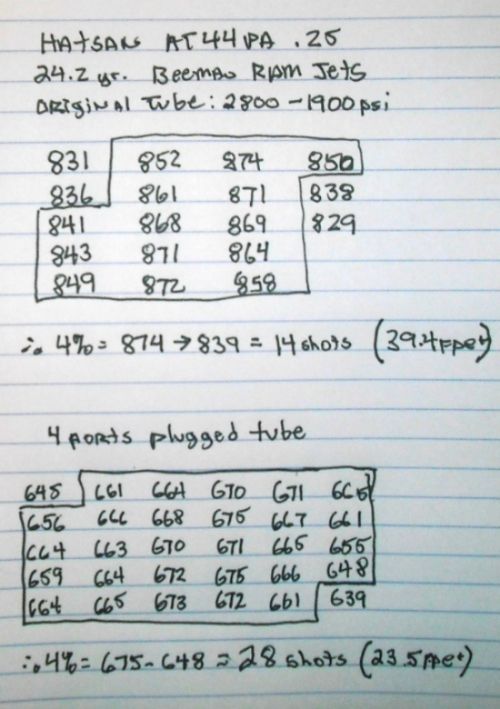 HATSAN AT44PA .25
24.2 gr. Beeman Ram Jets
Original Tube: 2800 - 1900 psi
831 852 874 850
836 861 871 838
841 868 869 829
843 871 864
849 872 858
∴ 4% = 874 → 839 = 14 shots (39.4fpe+)
4 ports plugged tube
645 661 664 670 671 665
656 666 668 675 667 661
664 663 670 671 665 655
659 664 672 675 666 648
664 665 673 672 661 639
∴ 4% = 675 - 648 = 28 shots (23.5fpe+)